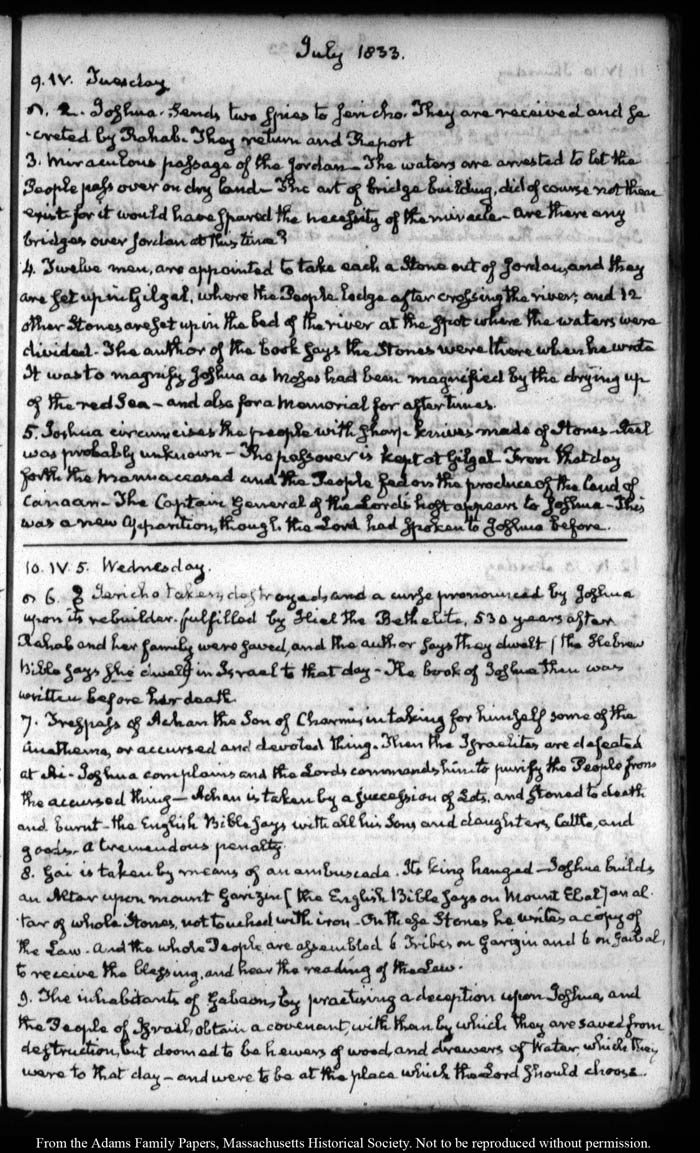 July 1833.
9. IV. Tuesday
2. Joshua. Sends two Spies to Jericho. They are received and se
creted by Rahab. They return and Report
3. Miraculous passage of the Jordan – The waters are arrested to let the
People pass over on dry land – The art of bridge building, did of course not then
exist for it would have spared the necessity of the miracle – Are there any
bridges over Jordan at this time?
4. Twelve men, are appointed to take each a Stone out of Jordan, and they
are set up in Gilgal, where the People lodge after crossing the river; and 12
other Stones are set up in the bed of the river at the spot where the waters were
divided – The author of the book says the Stones were there when he wrote
It was to magnify Joshua as Moses had been magnified by the drying up
of the red Sea – and also for a Memorial for after times.
5. Joshua circumcises the people with sharp knives made of Stones – Steel
was probably unknown – The passover is kept at Gilgal – From that day
forth the Manna ceased and the People fed on the produce of the land of
Canaan – The Captain General of the Lord's host appears to Joshua – This
was a new apparition, though the Lord had spoken to Joshua before.
10. IV. 5. Wednesday.
6. Jericho taken, destroyed, and a curse pronounced by Joshua
upon its rebuilder. fulfilled by Hiel the Bethelite, 530 years after
Rahab and her family were saved, and the author says they dwelt (the Hebrew
Bible says she dwelt) in Israel to that day – The book of Joshua then was
written before her death.
7. Trespass of Achan the Son of Charmi, in taking for himself some of the
Anathema, or accursed and devoted thing – Then the Israelites are defeated
at Ai – Joshua complains and the Lord commands him to purify the People from
the accursed thing – Achan is taken by a succession of Lots, and stoned to death
and burnt – the English Bible says with all his Sons and daughters, Cattle, and
goods – a tremendous penalty
8. Hai is taken by means of an ambuscade. Its king hanged – Joshua builds
an Altar upon mount Garizin [the English Bible says on Mount Ebal] an al
tar of whole Stones, not touched with iron – On these Stones he writes a copy of
the Law – And the whole People are assembled 6 Tribes on Garizin and 6 on Gaibal,
to receive the blessing, and hear the reading of the Law.
9. The inhabitants of Gabaon, by practising a deception upon Joshua, and
the People of Israel, obtain a covenant, with them by which they are saved from
destruction, but doomed to be hewers of wood, and drawers of Water, which they
were to that day – and were to be at the place which the Lord should choose.
From the Adams Family Papers, Massachusetts Historical Society. Not to be reproduced without permission.